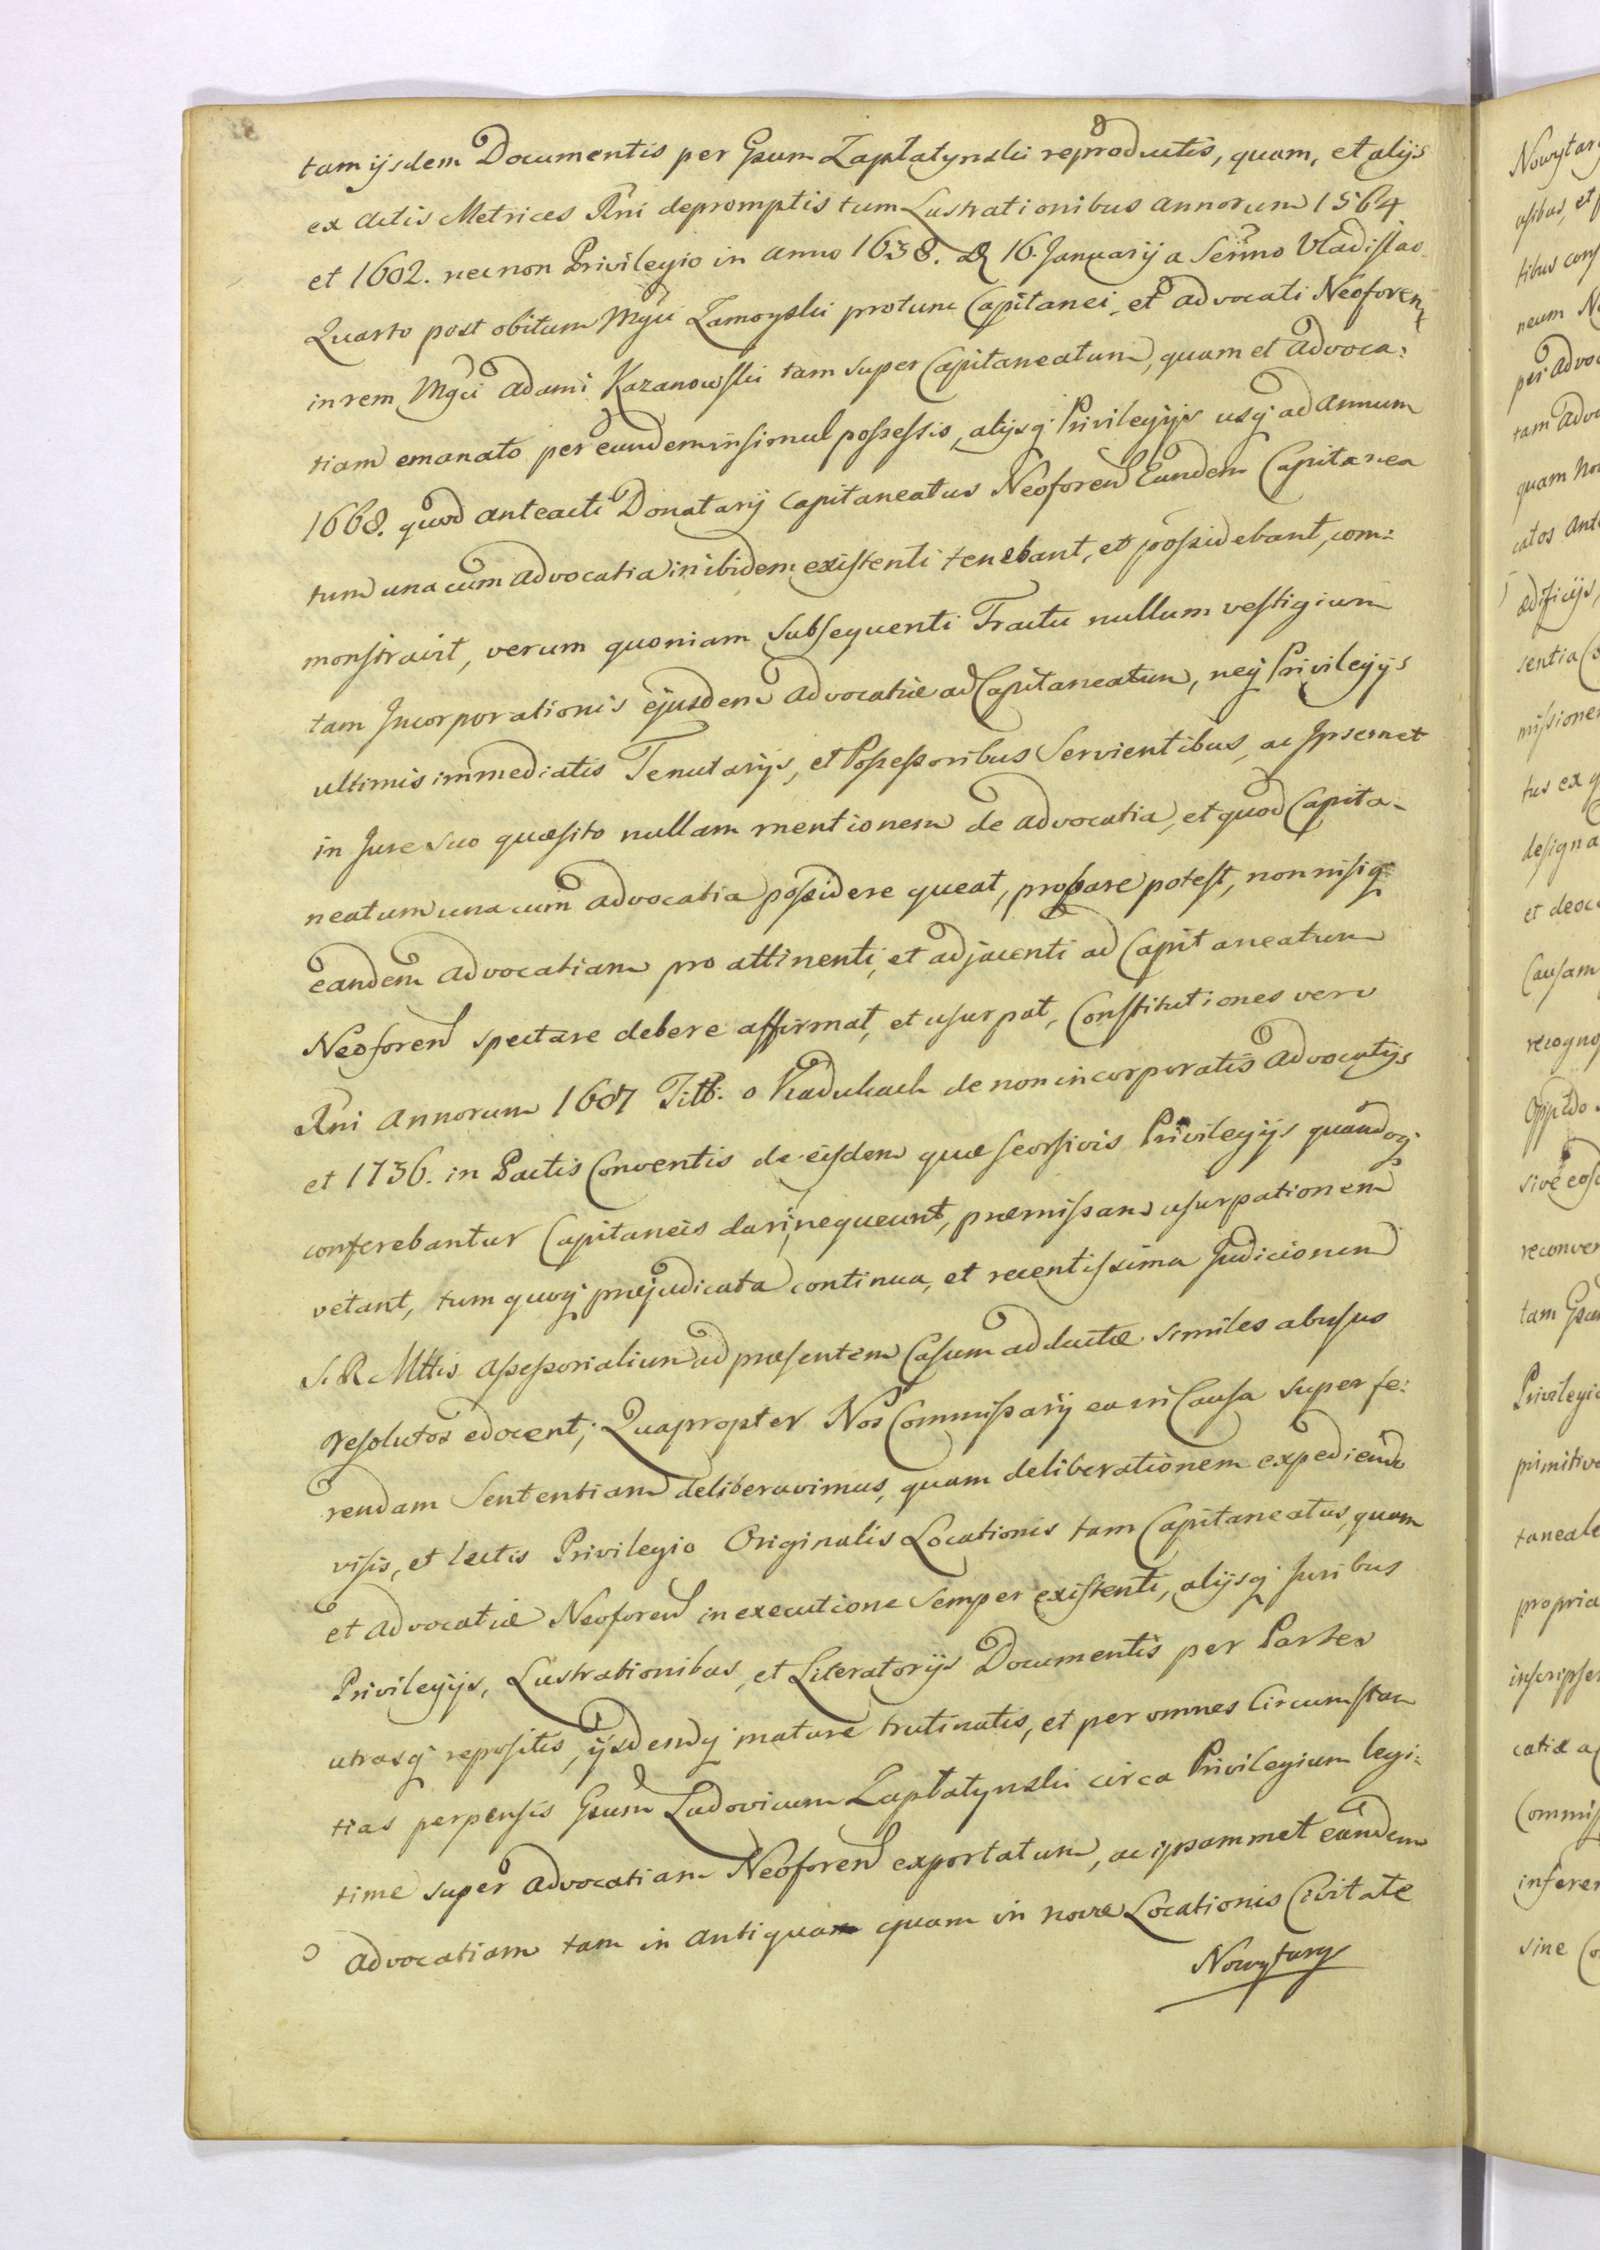 tam ijsdem Documentis per Gsum Zaplatynski reproductis, quam, et alijs
ex Actis Metrices Rni depromptis tum Lustrationibus annorum 1564
et 1602. necnon Privilegio in anno 1638. 16. Januarij a Sermo Vladislao
Quarto post obitum Mgci Zamoyski protunc Capitanei, et advocati Neoforen
in rem Mgci Adami Kazanowski tam super Capitaneatum, quam et Advoca:
tiam emanato per eundem insimul possessis, alijsq Privilegijs usq ad Annum
1668. quod anteacti Donatarij Capitaneatus Neoforen Eundem Capitanea
tum una cum advocatia inibidem existenti tenebant, et possidebant, com:
monstravit, verum quoniam subsequenti Tractu nullum vestigium
tam Incorporationis ejusdem advocatiæ ad Capitaneatum, neq Privilegijs
ultimis immediatis Tenutarijs, et Possessoribus Servientibus, ac Ipsemet
in Jure suo quæsito nullam mentionem de advocatia, et quod Capita-
neatum una cum advocatia possidere queat, probare potest, non nisi q
eandem advocatiam pro attinenti, et adjacenti ad Capitaneatum
Neoforen spectare debere affirmat, et usurpat, Constitutiones vero
Rni Annorum 1607 Titt: o Kadukach de non incorporatis advocatijs
et 1736. in Pactis Conventis de eisdem quæ seorsivis Privilegijs quandoq
conferebantur Capitaneis dari nequeunt, præmissam usurpationem
vetant, tum quoq præjudicata continua, et recentissima Judiciorum
S. R. Mttis Assessorialium ad præsentem Casum adductæ similes abusus
resolutos edocent; Quapropter Nos Commissarij ea in Causa super fe:
rendam Sententiam deliberavimus, quam deliberationem expediendo
visis, et lectis Privilegio Originalis Locationis tam Capitaneatus, quam
et advocatiæ Neoforen in executione semper existenti, alijsq Juribus
Privilegijs, Lustrationibus, et Literatorijs Documentis per Partes
utrasq repositis, ijsdemq mature trutinatis, et per omnes Circumstan
tias perpensis Gsum Ludovicum Zaplatynski circa Privilegium legi:
time super advocatiam Neoforen exportatum, ac ipsammet eandem
advocatiam tam in antiqua quam in novæ Locationis Civitate
Nowytarg